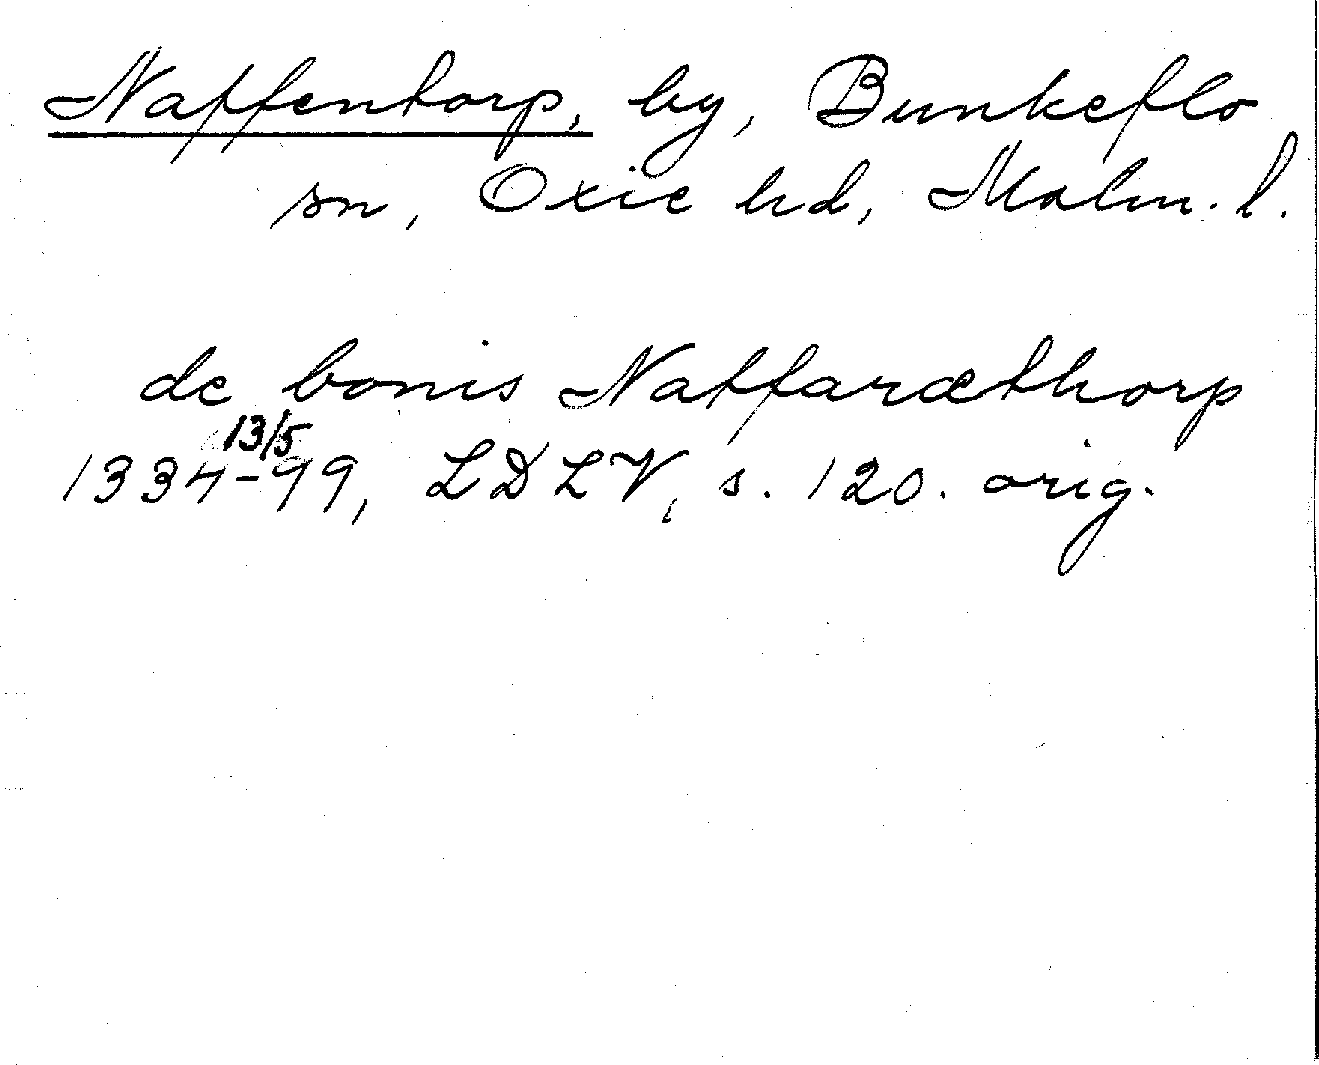 Naffentorp, by, Bunkeflo
sn, Oxie hd, Malm. l.
de bonis Natfaræthorp
13/5
1334-99, LDLV, s. 120. orig.